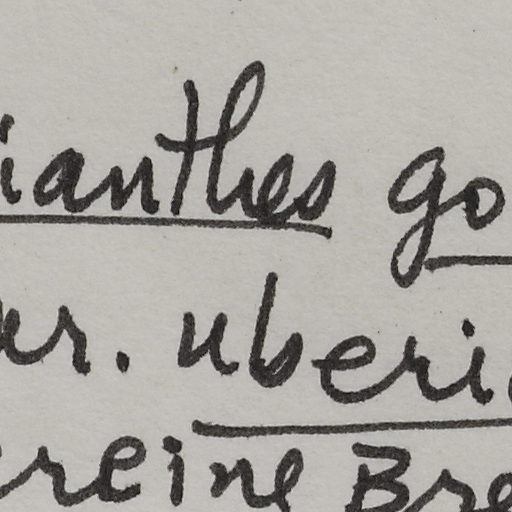 ianthes go
ar. uberi
ereine Bre